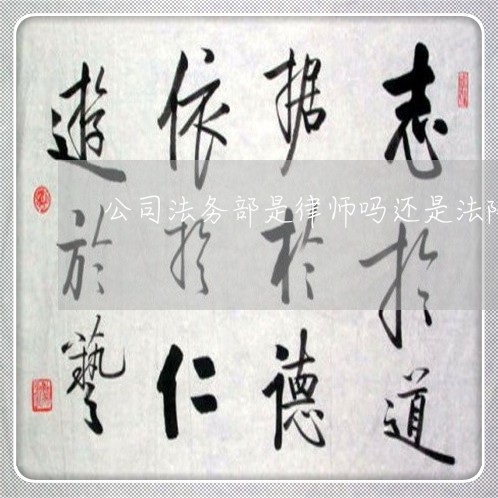 志於道
据於德
依於仁
遊於藝
公司法务部是律师吗还是法